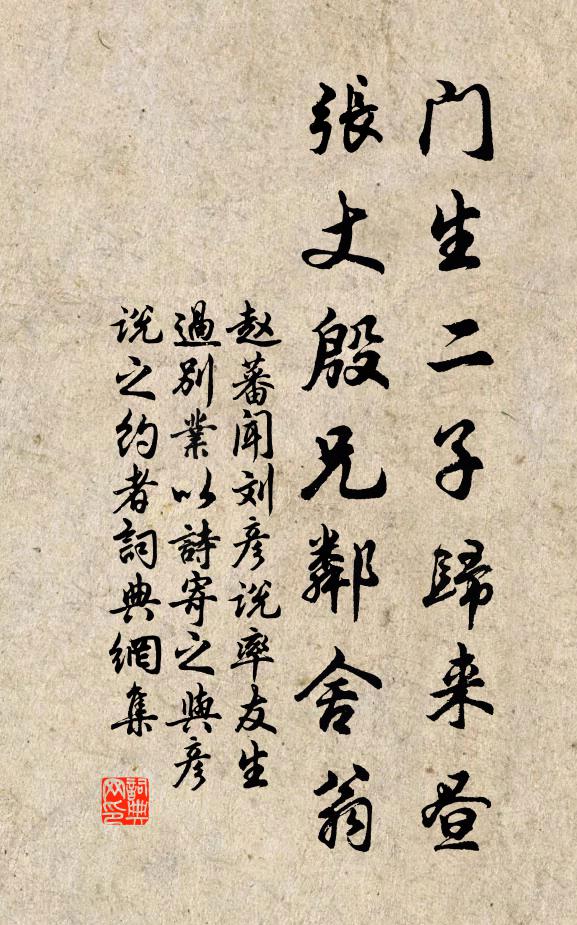 门生二子歸来昼
張丈殷兄鄰舍翁
赵蕃闻刘彦说率友生
過别業以詩寄之與彦
说之约者詞典網集
詞典网印